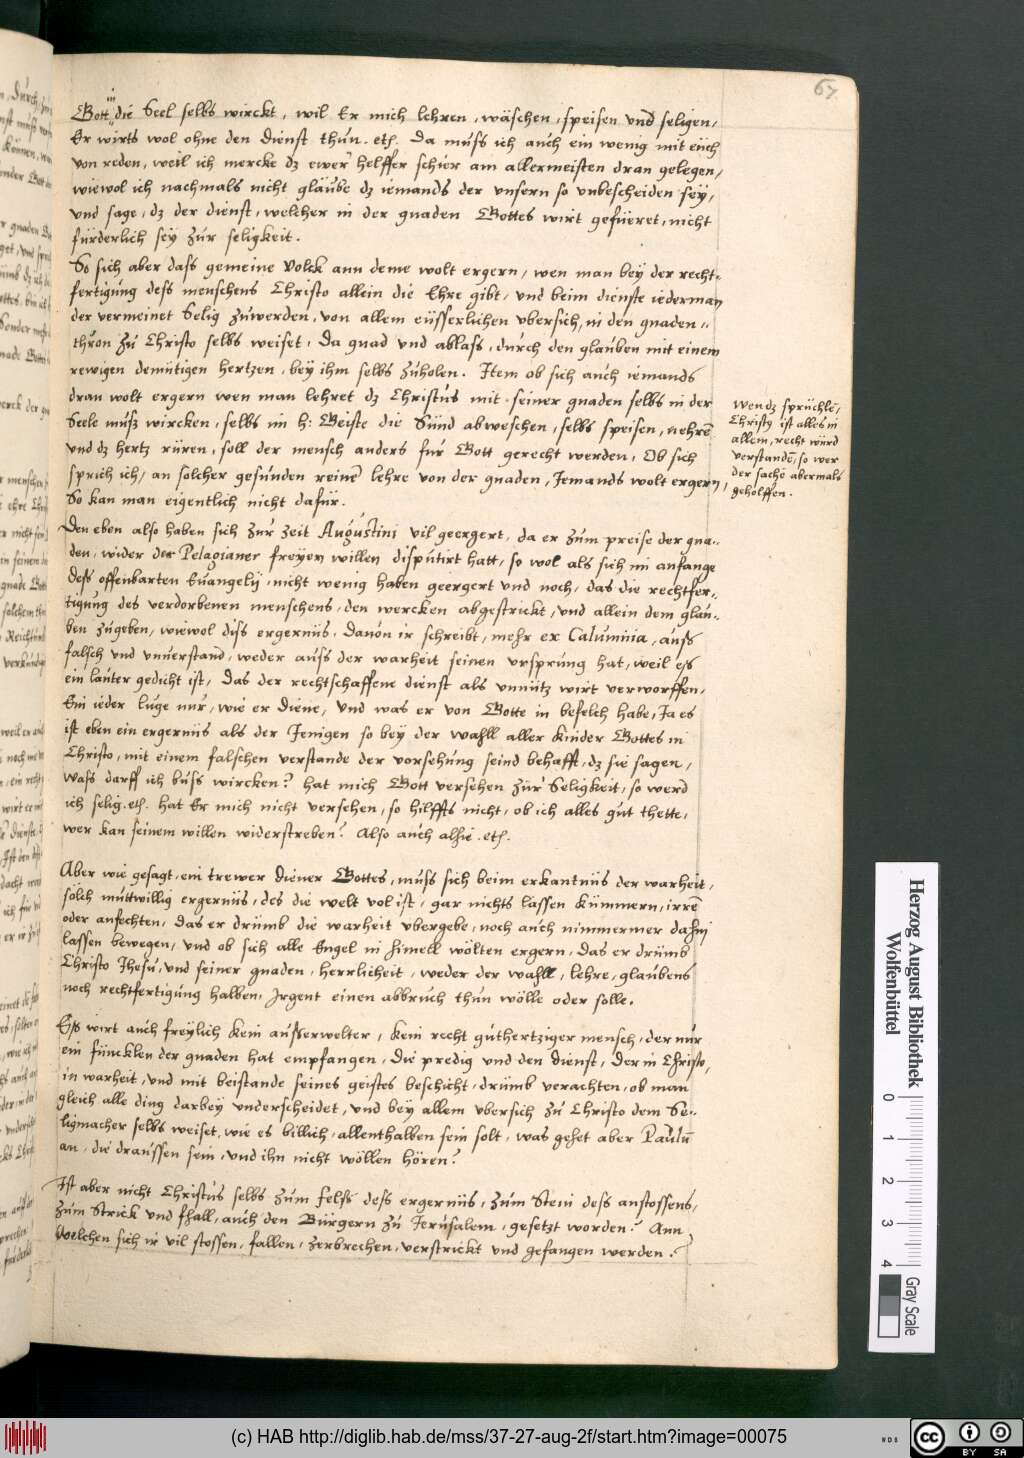 67
Gott in die Seel selbs wirckt, wil Er mich lehren, wäschen, speisen vnd seligen,
Er wirts wol ohne den dienst thun. etc. Da muss ich auch ein wenig mit eüch
von reden, weil ich mercke dz ewer helffer schier am allermeisten dran gelegen,
wiewol ich nachmals nicht gläube dz iemands der vnsern so vnbescheiden sey,
vnd sage, dz der dienst, welcher in der gnaden Gottes wirt gefüeret, nicht
fürderlich sey zur seligkeit.
So sich aber dass gemeine Volck ann deme wolt ergern, wen man bey der recht-
fertigung dess menschens Christo allein die Ehre gibt, vnd beim dienste iederman
der vermeinet Selig zuwerden, von allem eüsserlichen vbersich, in den gnaden-
thron zu Christo selbs weiset, Da gnad vnd ablass, durch den glauben mit einem
rewigen demütigen hertzen, bey ihm selbs zuholen. Item ob sich auch iemands
dran wolt ergern wen man lehret dz Christus mit seiner gnaden selbs in der
Seele muss wircken, selbs im h: Geiste die Sünd abweschen, selbs speisen, nehrē
vnd dz hertz rüren, soll der mensch anders für Gott gerecht werden, Ob sich
sprich ich, an solcher gesunden reinē lehre von der gnaden, Iemands wolt ergern,
So kan man eigentlich nicht dafür.
wen dz sprüchle,
Christus ist alles in
allem, recht würd
verstandē, so wer
der sache abermals
geholffen.
Den eben also haben sich zur zeit Augustini vil geergert, da er zum preise der gna-
den, wider der Pelagianer freyen willen disputirt hatt, so wol als sich im anfange
dess offenbarten Euangelij, nicht wenig haben geergert vnd noch, das die rechtfer-
tigung des verdorbenen menschens, den wercken abgestrickt, vnd allein dem glau-
ben zugeben, wiewol diss ergernüs, dauon ir schreibt, mehr ex Calumnia, auss
falsch vnd vnuerstand, weder auss der warheit seinen vrsprung hat, weil ess
ein lauter gedicht ist, Das der rechtschaffene dienst als vnnütz wirt verworffen,
Ein ieder luge nur, wie er diene, vnd was er von Gotte in befelch habe, Ja es
ist eben ein ergernüs als der Jenigen so bey der wahll aller kinder Gottes in
Christo, mit einem falschen verstande der vorsehung seind behafft, dz sie sagen,
wass darff ich buss wircken? hat mich Gott versehen zur Seligkeit, so werd
ich selig. etc. hat Er mich nicht versehen, so hilffts nicht, ob ich alles gut thette,
wer kan seinem willen widerstreben? Also auch alhie. etc.
Aber wie gesagt, ein trewer diener Gottes, muss sich beim erkantnüs der warheit,
solch muttwillig ergernüs, des die welt vol ist, gar nichts lassen kümmern, irrē
oder anfechten, das er drümb die warheit vbergebe, noch auch nimmermer dahin
lassen bewegen, vnd ob sich alle Engel in himell wölten ergern, das er drümb
Christo Jhesu, vnd seiner gnaden, herrlicheit, weder der wahll, lehre, glaubens
noch rechtfertigung halben, Jrgent einen abbruch thun wölle oder solle.
Ess wirt auch freylich kein ausserwelter, kein recht guthertziger mensch, der nur
ein füncklen der gnaden hat empfangen, die predig vnd den dienst, der in Christo,
in warheit, vnd mit beistande seines geistes beschicht, drümb verachten, ob man
gleich alle ding darbey vnderscheidet, vnd bey allem vbersich zu Christo dem Se-
ligmacher selbs weiset, wie es billich, allenthalben sein solt, was gehet aber Paulū
an, die draussen sein, vnd ihn nicht wöllen hören?
Ist aber nicht Christus selbs zum felss dess ergernüs, zum Stein dess anstossens,
zum Strick vnd fhall, auch den Bürgern zu Jerusalem, gesetzt worden? Ann
welchen sich ir vil stossen, fallen, zerbrechen, verstrickt vnd gefangen werden.
Herzog August Bibliothek
Wolfenbüttel
0 1 2 3 4
Gray Scale
(c) HAB http://diglib.hab.de/mss/37-27-aug-2f/start.htm?image=00075
WDB
cc BY SA